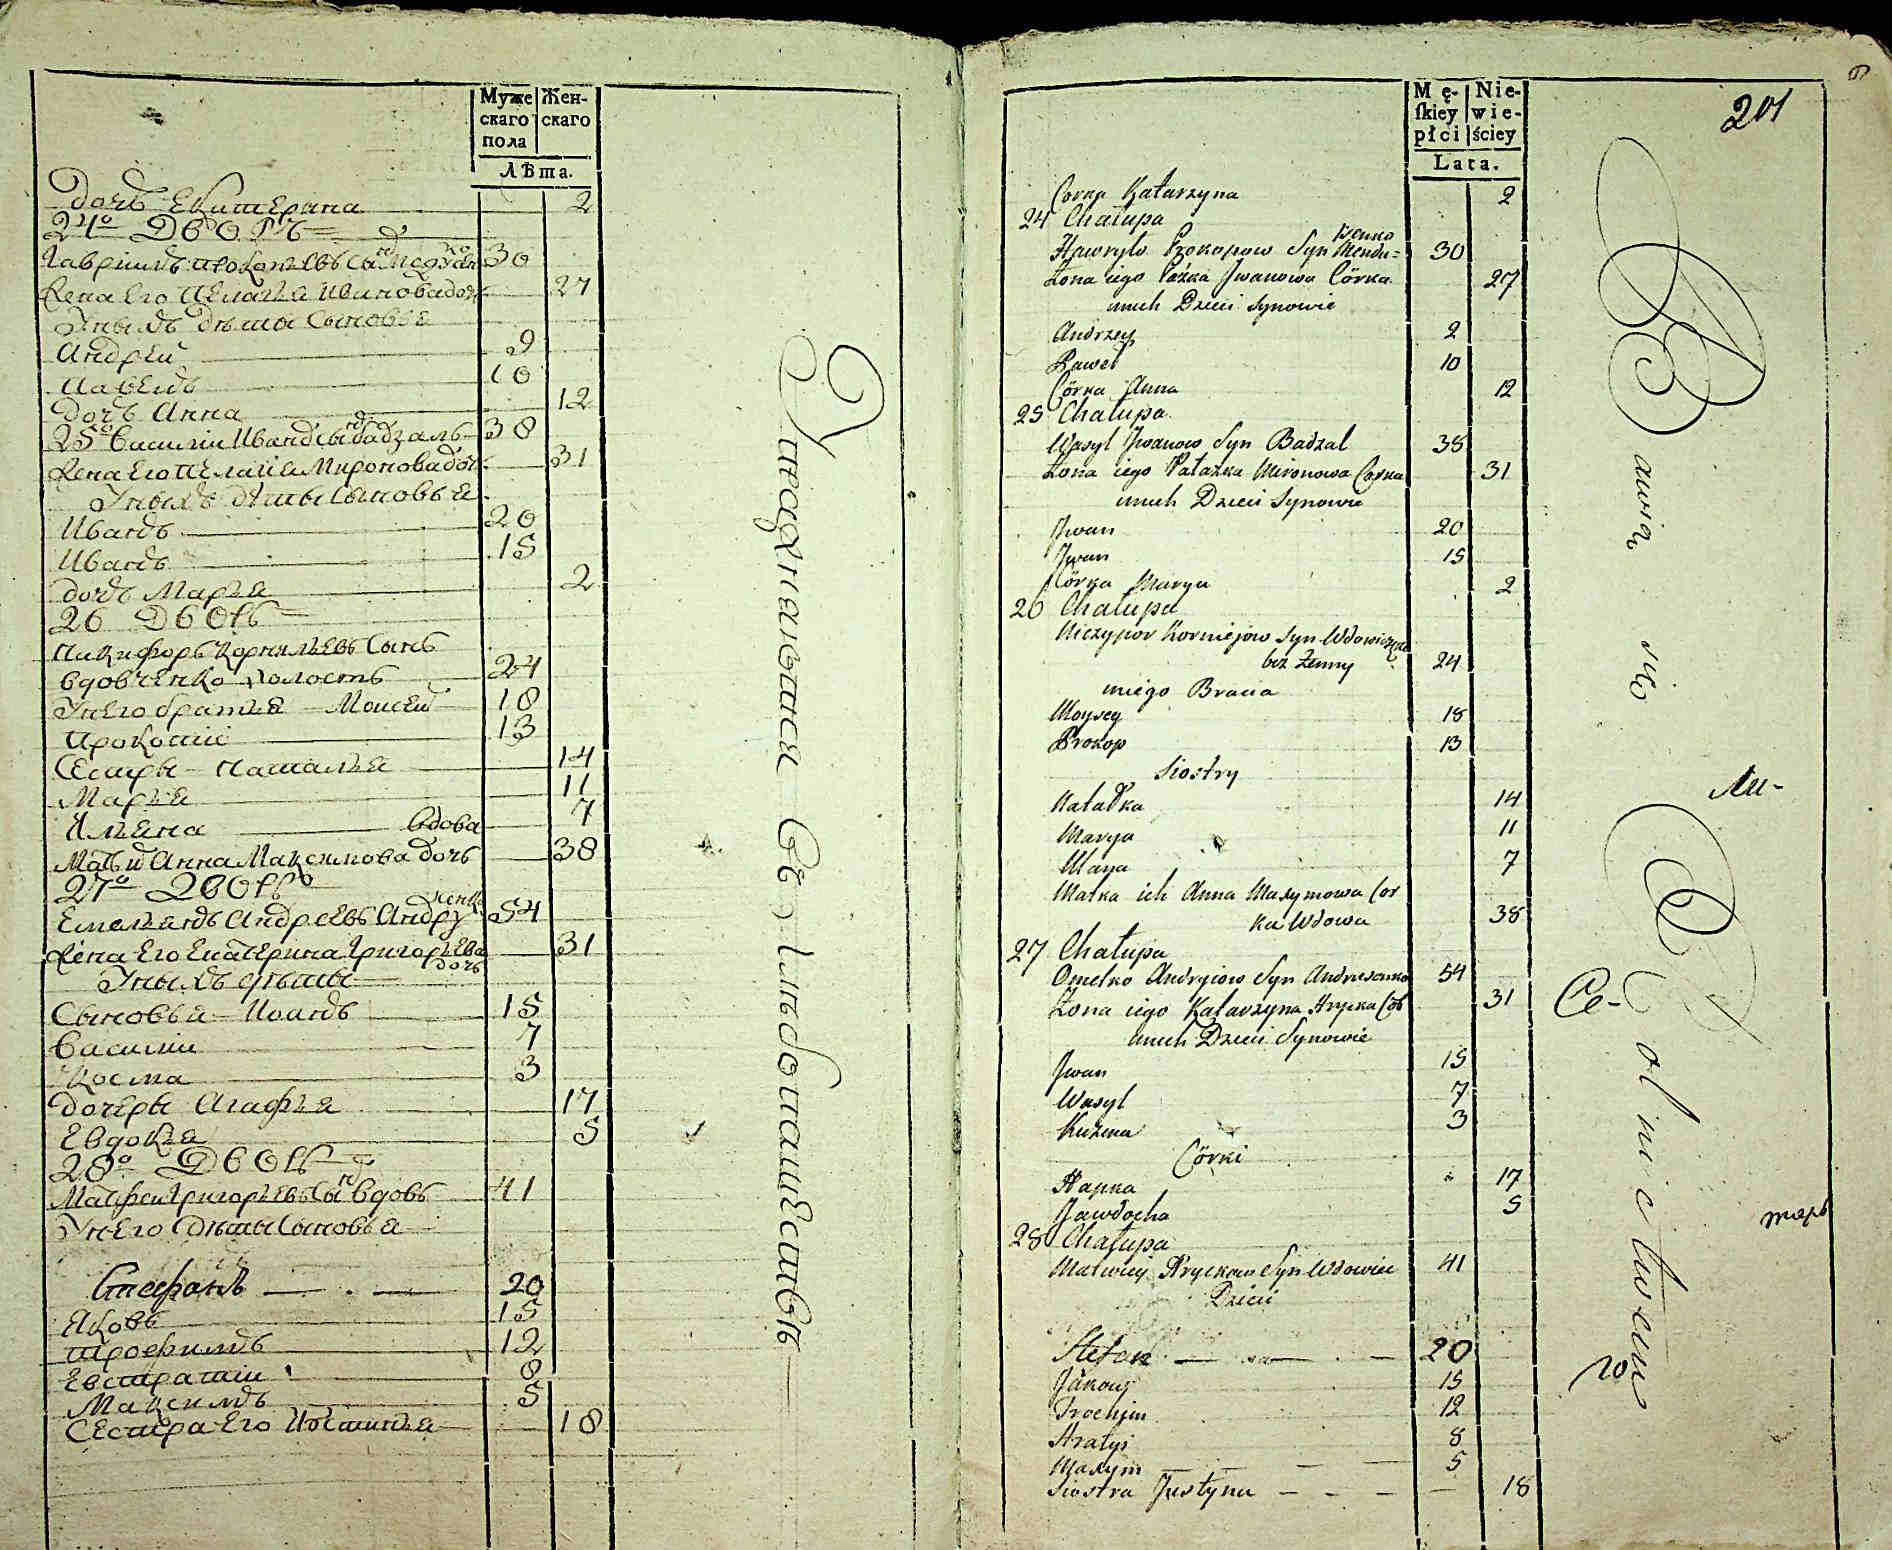 Муже
скаго
пола
Жен-
скаго
Лѣта.
дочь Екатерина 2
24º Дворъ
Гаврiилъ Прокопьевъ сынъ 30
жена Его Пелагья Иванова дочь 27
Унихъ дѣти сыновья
Андрей 9
Павелъ 10
дочь Анна 12
25º Василiй Ивановъ сынъ Бадзаль 38
жена Его Пелагья Миронова доч 31
Унихъ дѣти сыновья
Иванъ 20
Иванъ 15
дочь Марья 2
26 Дворъ
Никифоръ Корнильевъ сынъ
вдовченко холостъ 24
Унего братья Моисей 18
Прокопiй 13
Сестры Наталья 14
Марья 11
Ульяна 7
вдова
Мать и Анна Максимова дочь 38
27º Дворъ
Емельянъ Андреевъ Андру 54
женко
жена Его Екатерина Григорьева 31
дочь
Унихъ дѣти
Сыновья Иванъ 15
Василiй 7
Косма 3
дочери Агафья 17
Евдокья 5
28º Дворъ
Матфей Григорьевъ сынъ вдовъ 41
Унего дѣти сыновья
Стефанъ 20
Яковъ 15
Трофимъ 12
Евстратiй 8
Максимъ 5
Сестра Его Юстинья 18
Унiатскаго
201
Mę-
ſkiey
płci
Nie-
wie-
ściey
Lata.
Corka Katarzyna 2
24 Chałupa
Hawryło Prokopow Syn Mendu= 30
szenko
Zona iego Pazka Jwanowa Córka 27
unich Dzieci Synowie
Andrzey 2
Paweł 10
Córka Anna 12
25 Chałupa
Wasyl Jwanow Syn Badzal 38
Zona iego Palazka Mironowa Corka 31
unich Dzieci Synowie
Jwan 20
Jwan 15
Córka Marya 2
26 Chałupa
Niczypor Korniejow Syn Wdowiczenko
bez Zenny 24
uniego Bracia
Moysey 18
Prokop 13
Siostry
Natałka 14
Marya 11
Ulana 7
Matka ich Anna Maxymowa Cor
ka Wdowa 38
27 Chałupa
Omelko Andryiow Syn Andruszenko 54
Zona iego Katarzyna Hrycka Cor 31
unich Dzieci Synowie
Jwan 15
Wasyl 7
Kuzma 3
Córki
Hapka 17
Jawdocha 5
28 Chałupa
Matwiey Hryckow Syn Wdowiec 41
Dzieci
Stefan 20
Jakow 15
Trochym 12
Stratyi 8
Maxym 5
Siostra Justyna 18
Bawią się
Rolnictwem
Се-
кре-
тарь